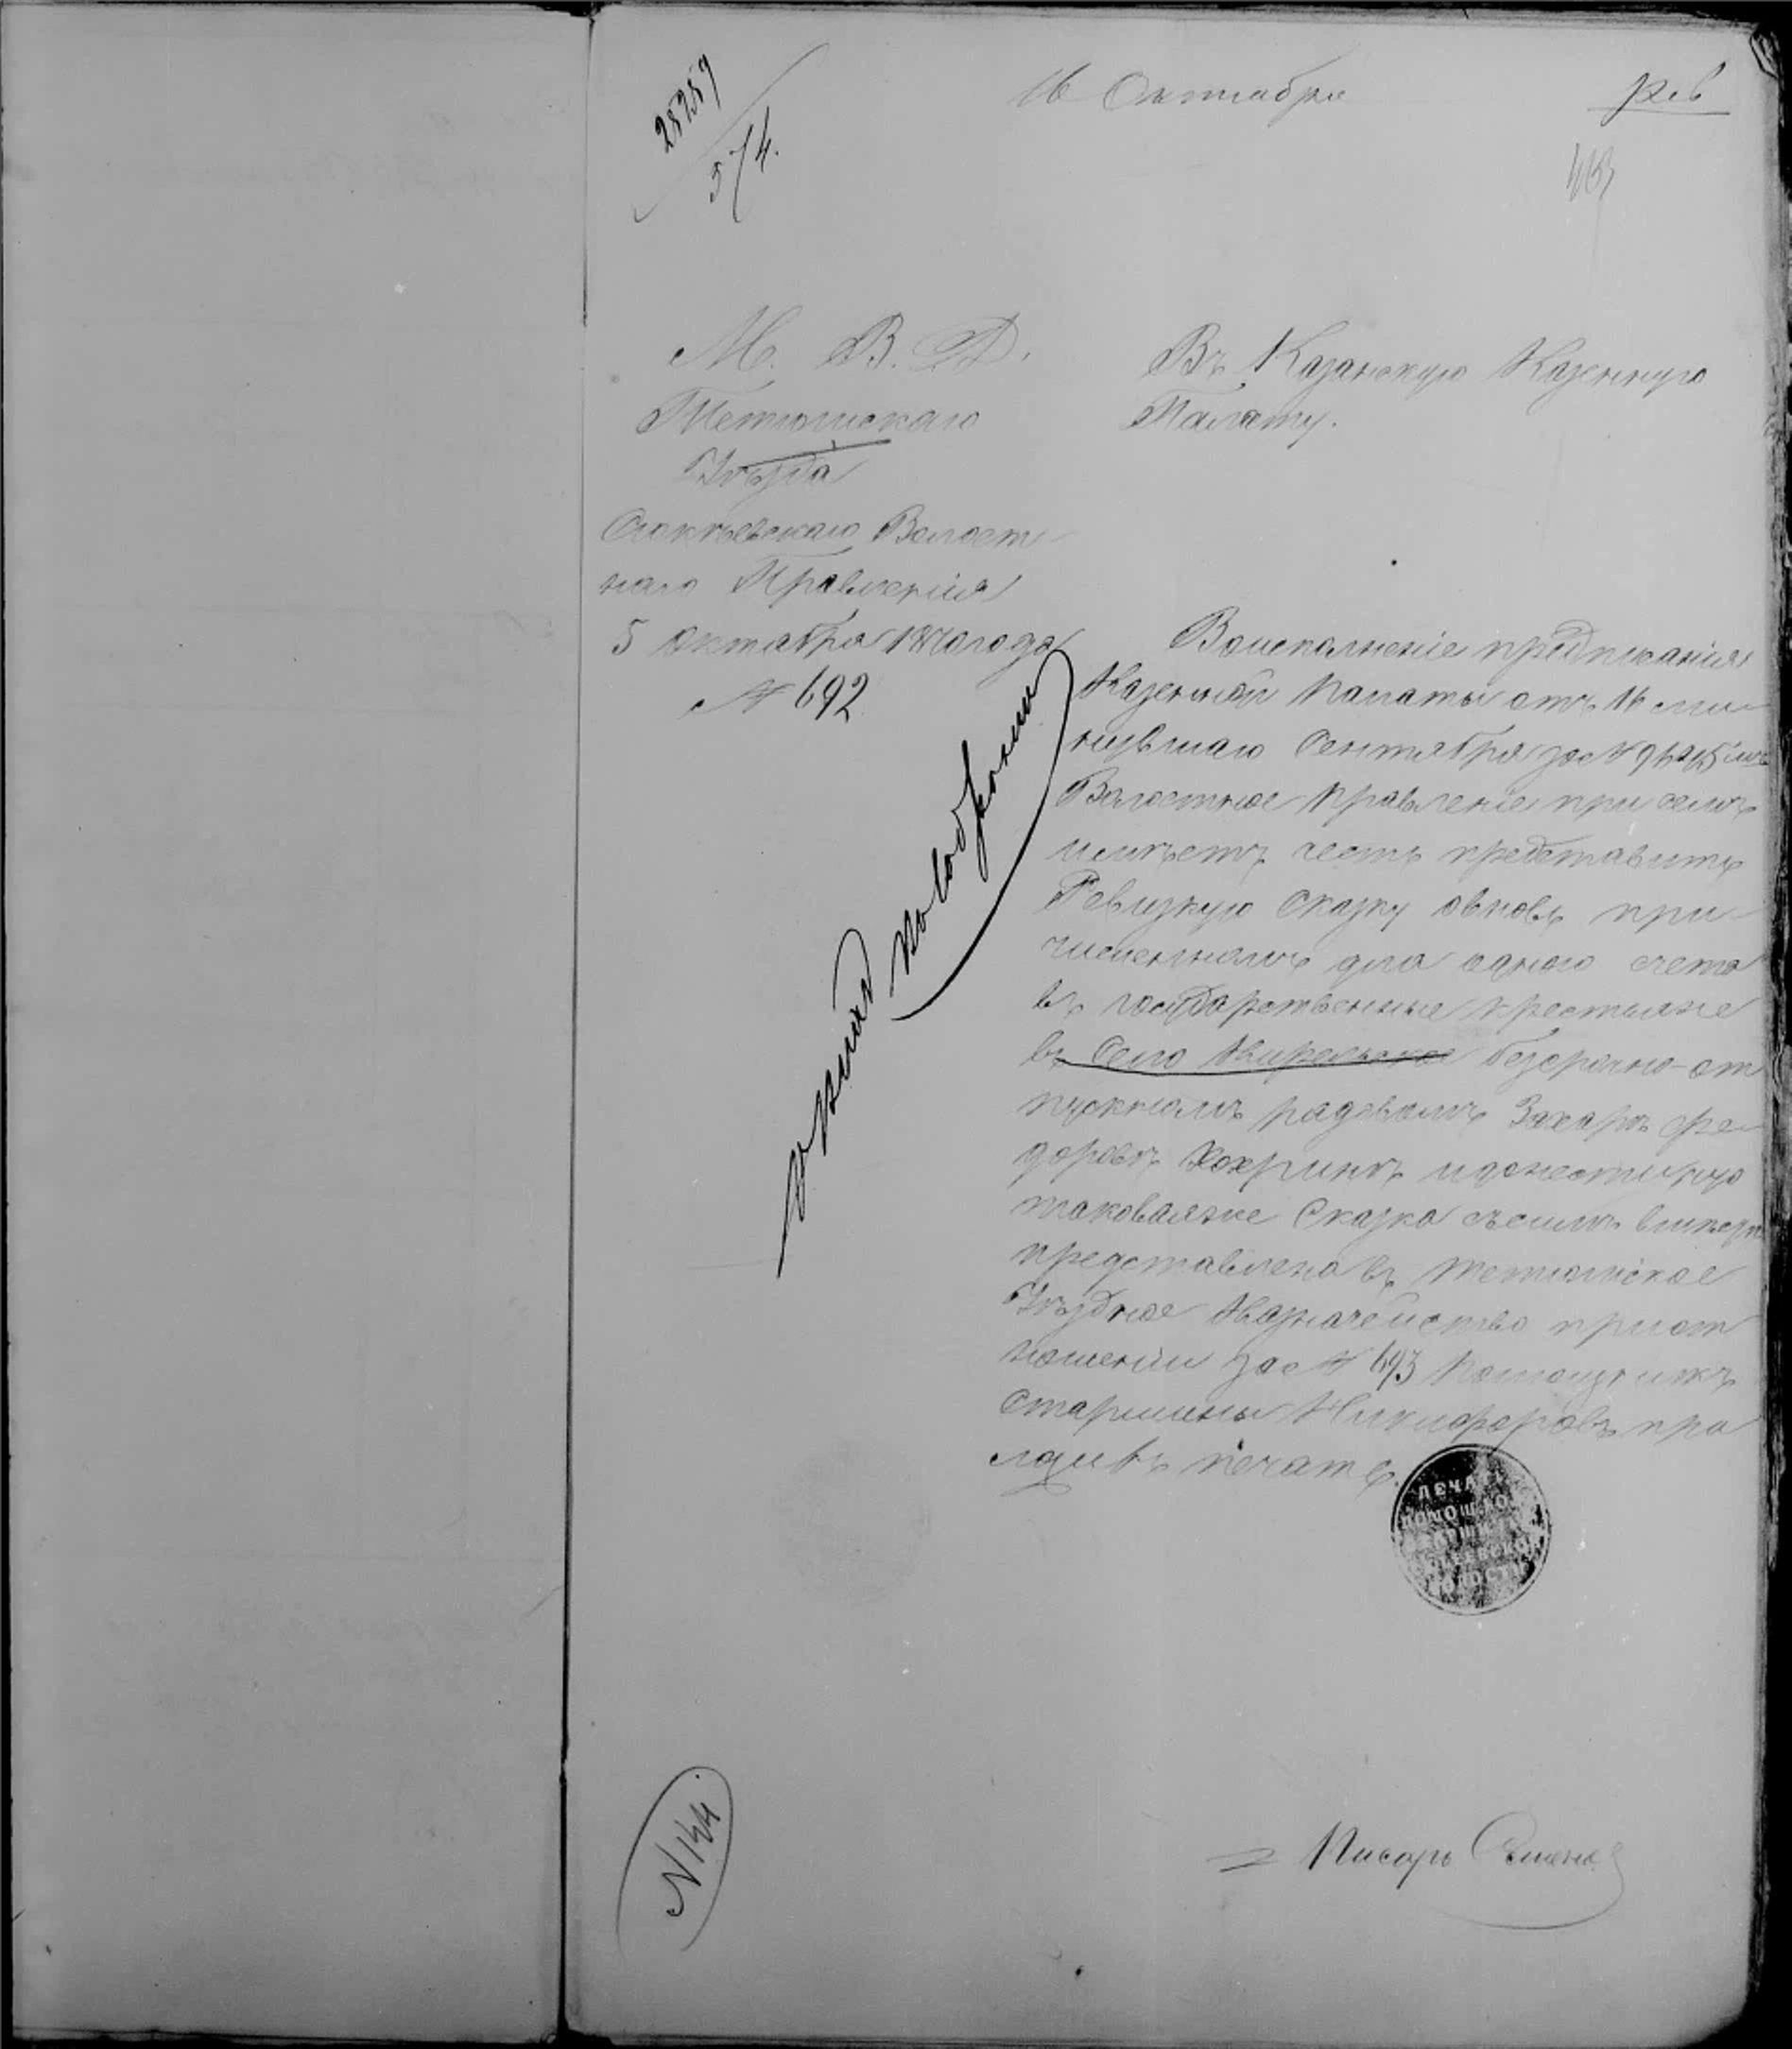 28289
574.
16 Октября
Рев
М. В. Д.
Тетюшскаго
Уѣзда
Волост-
наго Правленія
5 Октября 1870 года
№ 692
Въ Казанскую Казенную
Палату.
Воисполненіе предписанія
Казенной Палаты отъ 16 ми-
нувшаго Сентября за №
Волостное Правленіе при семъ
имѣетъ честь представить
Ревизкую Сказку овновь при-
численномъ для одного счета
въ государственные крестьяне
въ Село безсрочно-от
пускномъ рядовомъ Захарѣ Фе-
доровѣ Кокринѣ и
таковаяже Сказка съсимъ вмѣстѣ
представлена въ Тетюшское
Уѣздное Казначейство приот
ношеніи за № 693 Помощникъ
Старшины Никифоровъ при
ложивъ печать.
ПЕЧА
ПОМОЩ
ВОЛОСТИ
Писарь Семенов
№ 144